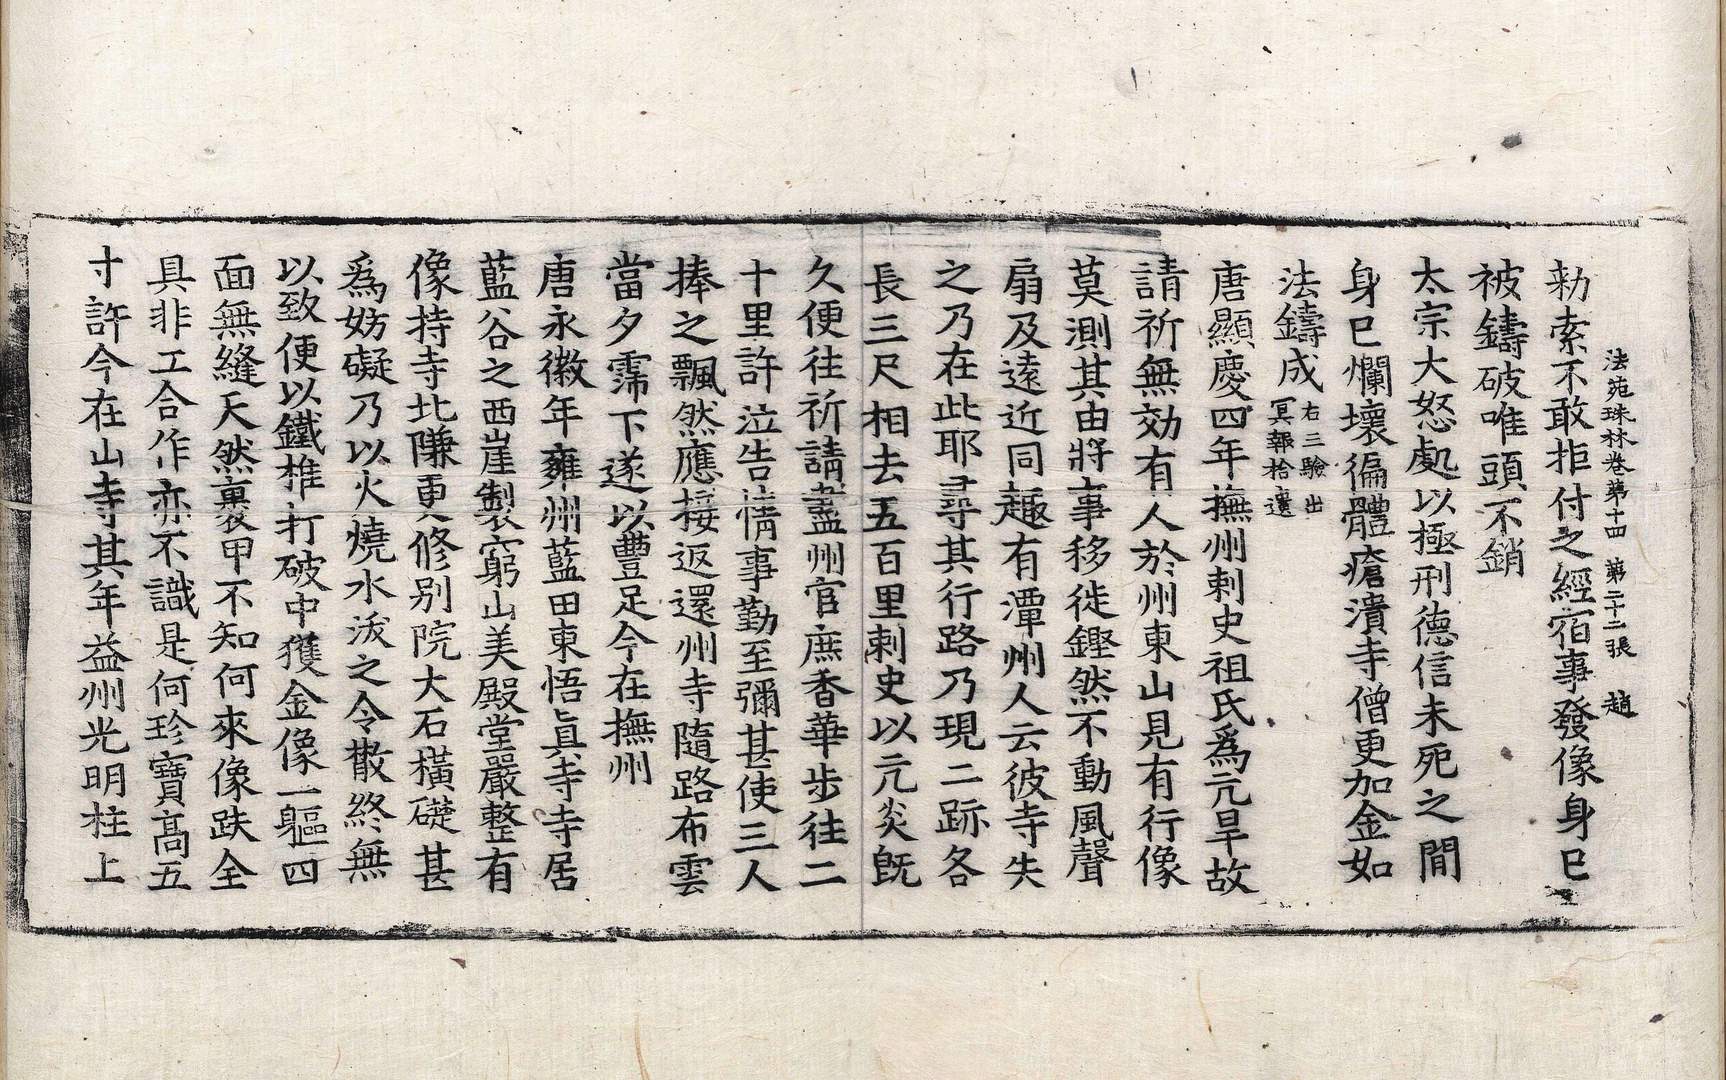 法苑珠林卷第十四　第二十二張　趙
勑索不敢拒付之經宿事發像身巳
被鑄破唯頭不銷
太宗大怒處以極刑德信未死之間
身巳爛壞徧體瘡潰寺僧更加金如
法鑄成右三驗出冥報拾遺
唐顯慶四年撫州刺史祖氏爲亢旱故
請祈無効有人於州東山見有行像
莫測其由將事移徙鏗然不動風聲
扇及遠近同趣有潭州人云彼寺失
之乃在此耶尋其行路乃現二跡各
長三尺相去五百里刺史以亢炎旣
久便往祈請盡州官庶香華步往二
十里許泣告情事勤至彌甚使三人
捧之飄然應接返還州寺隨路布雲
當夕霈下遂以豐足今在撫州
唐永徽年雍州藍田東悟眞寺寺居
藍谷之西崖製窮山美殿堂嚴整有
像持寺北隒更修別院大石橫礎甚
爲妨礙乃以火燒水沃之令散終無
以致便以鐵椎打破中獲金像一軀四
面無縫天然裹甲不知何來像趺全
具非工合作亦不識是何珍寶高五
寸許今在山寺其年益州光明柱上